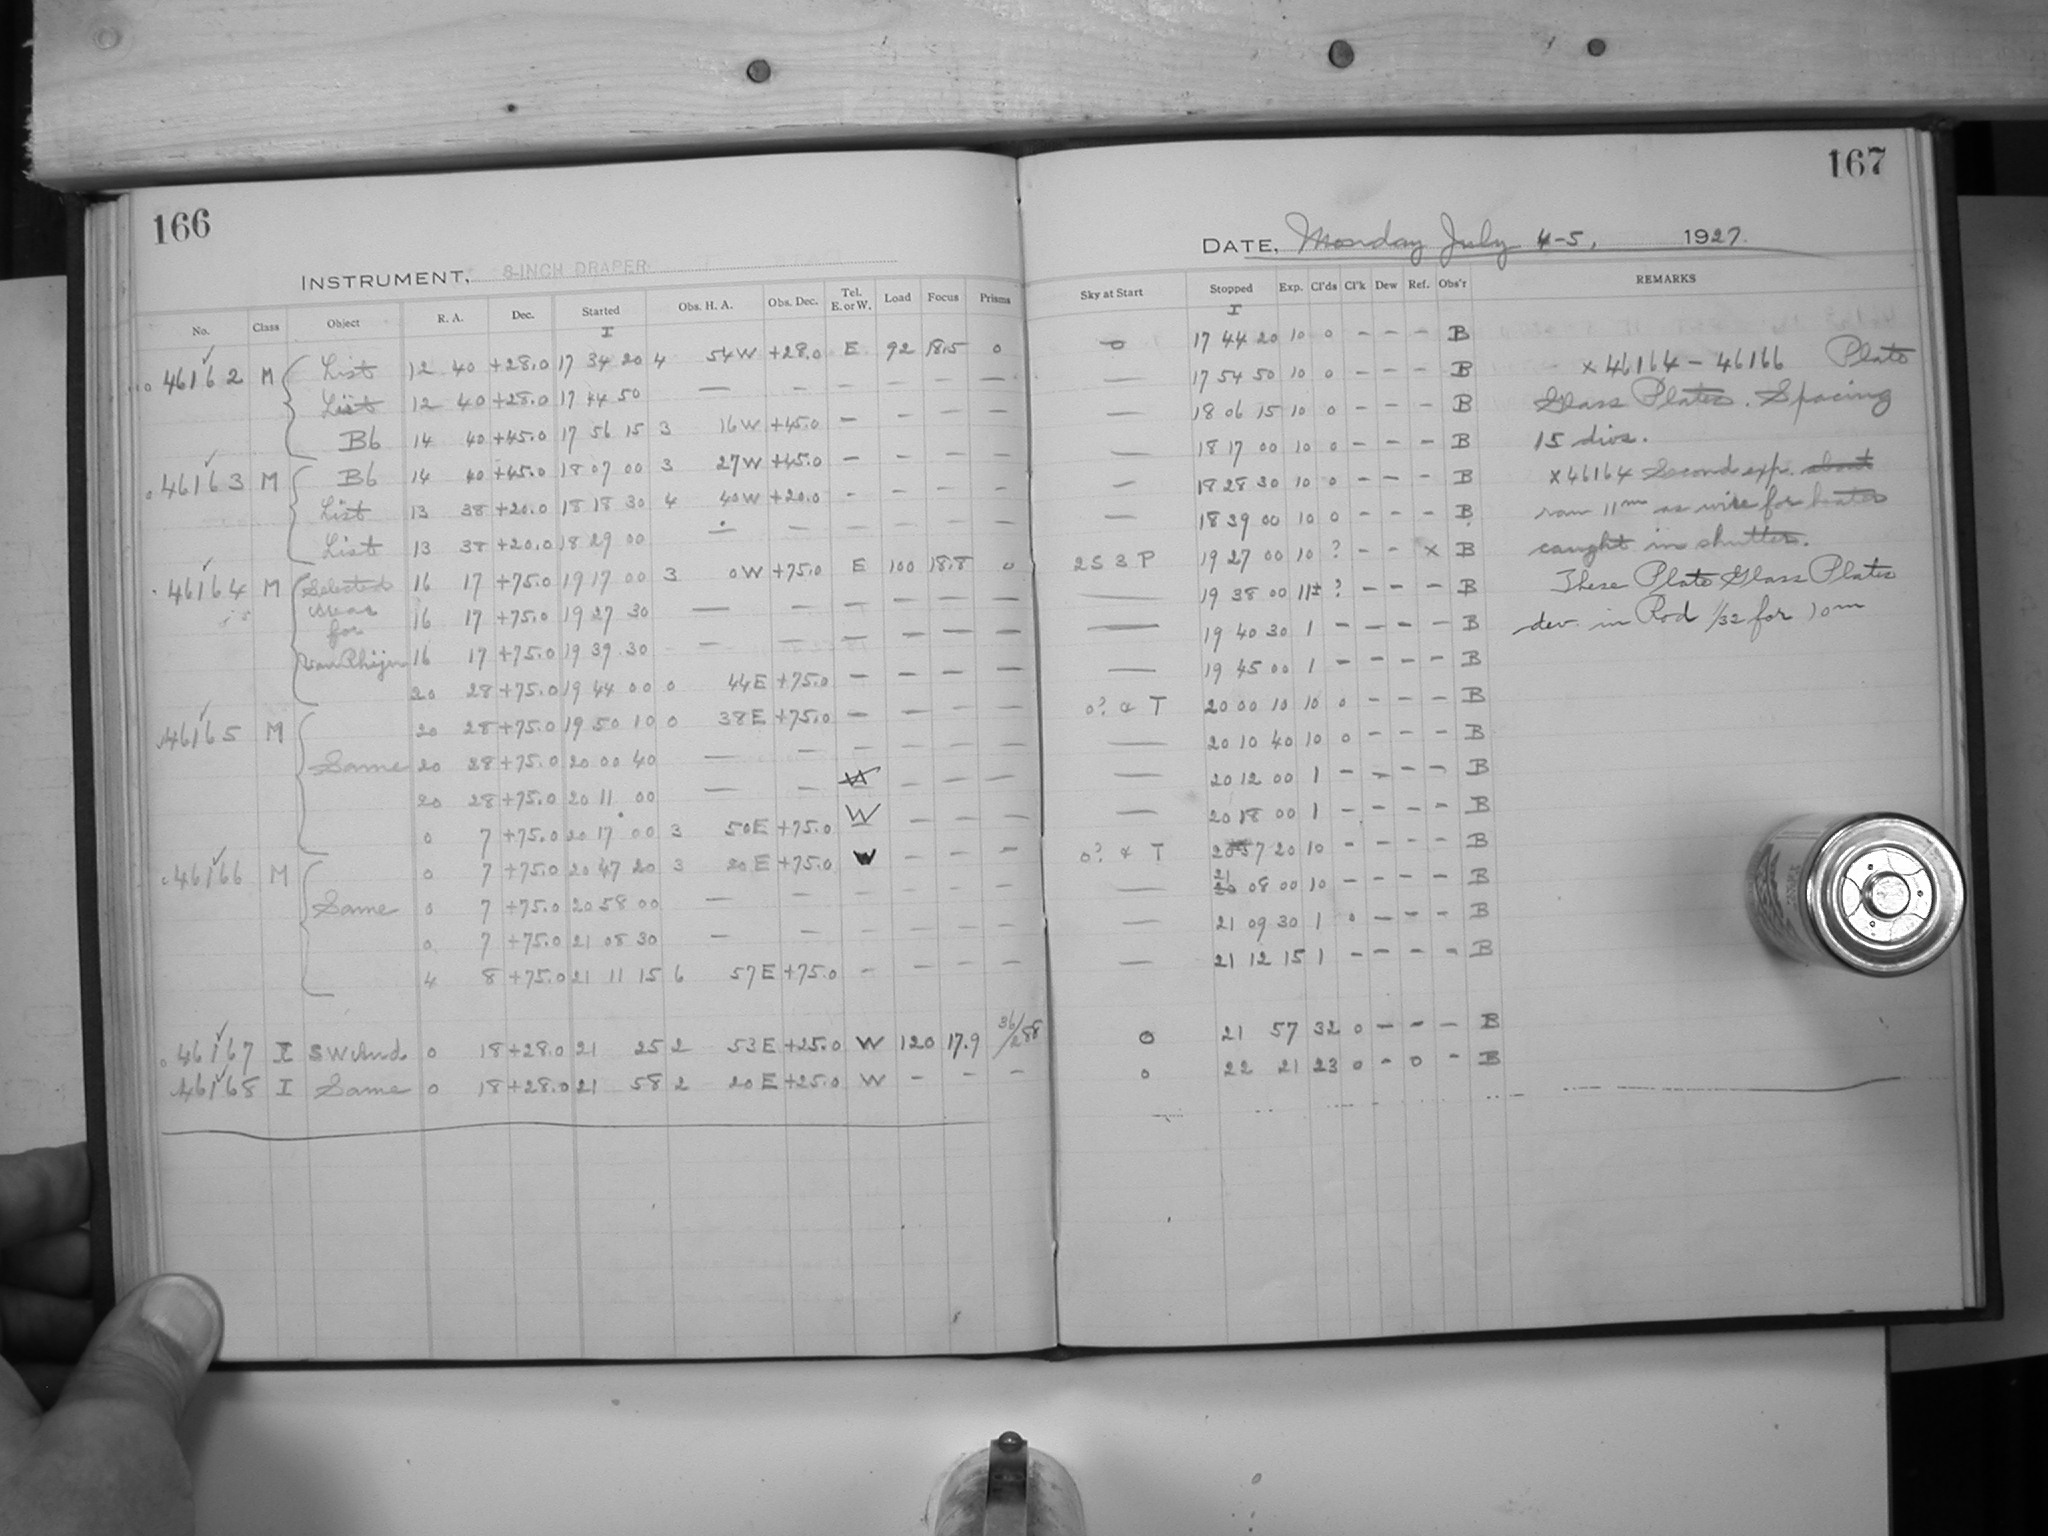 166
INSTRUMENT, 8-INCH DRAPER
No. Class Object R. A. Dec. Started Obs. H. A. Obs. Dec. Tel. E. or W. Load Focus Prisms
I
46162 M List 12 40 +28.0 17 34 20 4 54W +28.0 E 92 18.5 0
List 12 40 +28.0 17 44 50 — — — — — —
B6 14 40 +45.0 17 56 15 3 16W +45.0 — — — —
46163 M B6 14 40 +45.0 18 07 00 3 27W +45.0 — — — —
List 13 38 +20.0 18 18 30 4 40W +20.0 - - - -
List 13 38 +20.0 18 29 00 — — — — — —
46164 M Selected 16 17 +75.0 19 17 00 3 0W +75.0 E 100 18.8 0
Areas 16 17 +75.0 19 27 30 — — — — — —
for
Van Rhijn 16 17 +75.0 19 39 30 — — — — — —
20 28 +75.0 19 44 00 0 44E +75.0 — — — —
46165 M 20 28 +75.0 19 50 10 0 38E +75.0 — — — —
Same 20 28 +75.0 20 00 40 — — — — —
20 28 +75.0 20 11 00 — — W — — —
0 7 +75.0 20 17 00 3 50E +75.0 W — — —
46166 M 0 7 +75.0 20 47 20 3 20E +75.0 W — — —
Same 0 7 +75.0 20 58 00 — — — — — —
0 7 +75.0 21 08 30 — — — — — —
4 8 +75.0 21 11 15 6 57E +75.0 - — — —
46167 I SW And 0 18 +28.0 21 25 2 53E +25.0 W 120 17.9 36/288
46168 I Same 0 18 +28.0 21 58 2 20E +25.0 W — — —
167
DATE, Monday July 4-5, 1927.
Sky at Start Stopped Exp. Cl'ds Cl'k Dew Ref. Obs'r REMARKS
I
0 17 44 20 10 0 — — — B
— 17 54 50 10 0 — — — B
— 18 06 15 10 0 — — — B
— 18 17 00 10 0 — — — B
— 18 28 30 10 0 — — — B
— 18 39 00 10 0 — — — B
2S 3 P 19 27 00 10 ? — — x B
— 19 38 00 11± ? — — — B
— 19 40 30 1 — — — — B
— 19 45 00 1 — — — — B
0? & T 20 00 10 10 0 — — — B
— 20 10 40 10 0 — — — B
— 20 12 00 1 — — — — B
— 20 18 00 1 — — — — B
0? & T 20 57 20 10 — — — — B
21
— 20 08 00 10 — — — — B
— 21 09 30 1 0 — — — B
— 21 12 15 1 — — — — B
0 21 57 32 0 — — — B
0 22 21 23 0 - 0 - B
x 46164 - 46166 Plate
Glass Plates. Spacing
15 divs.
x 46164 Second exp. about
ran 11m as wire for heater
caught in shutter.
These Plate Glass Plates
dev. in Rod 1/32 for 10m